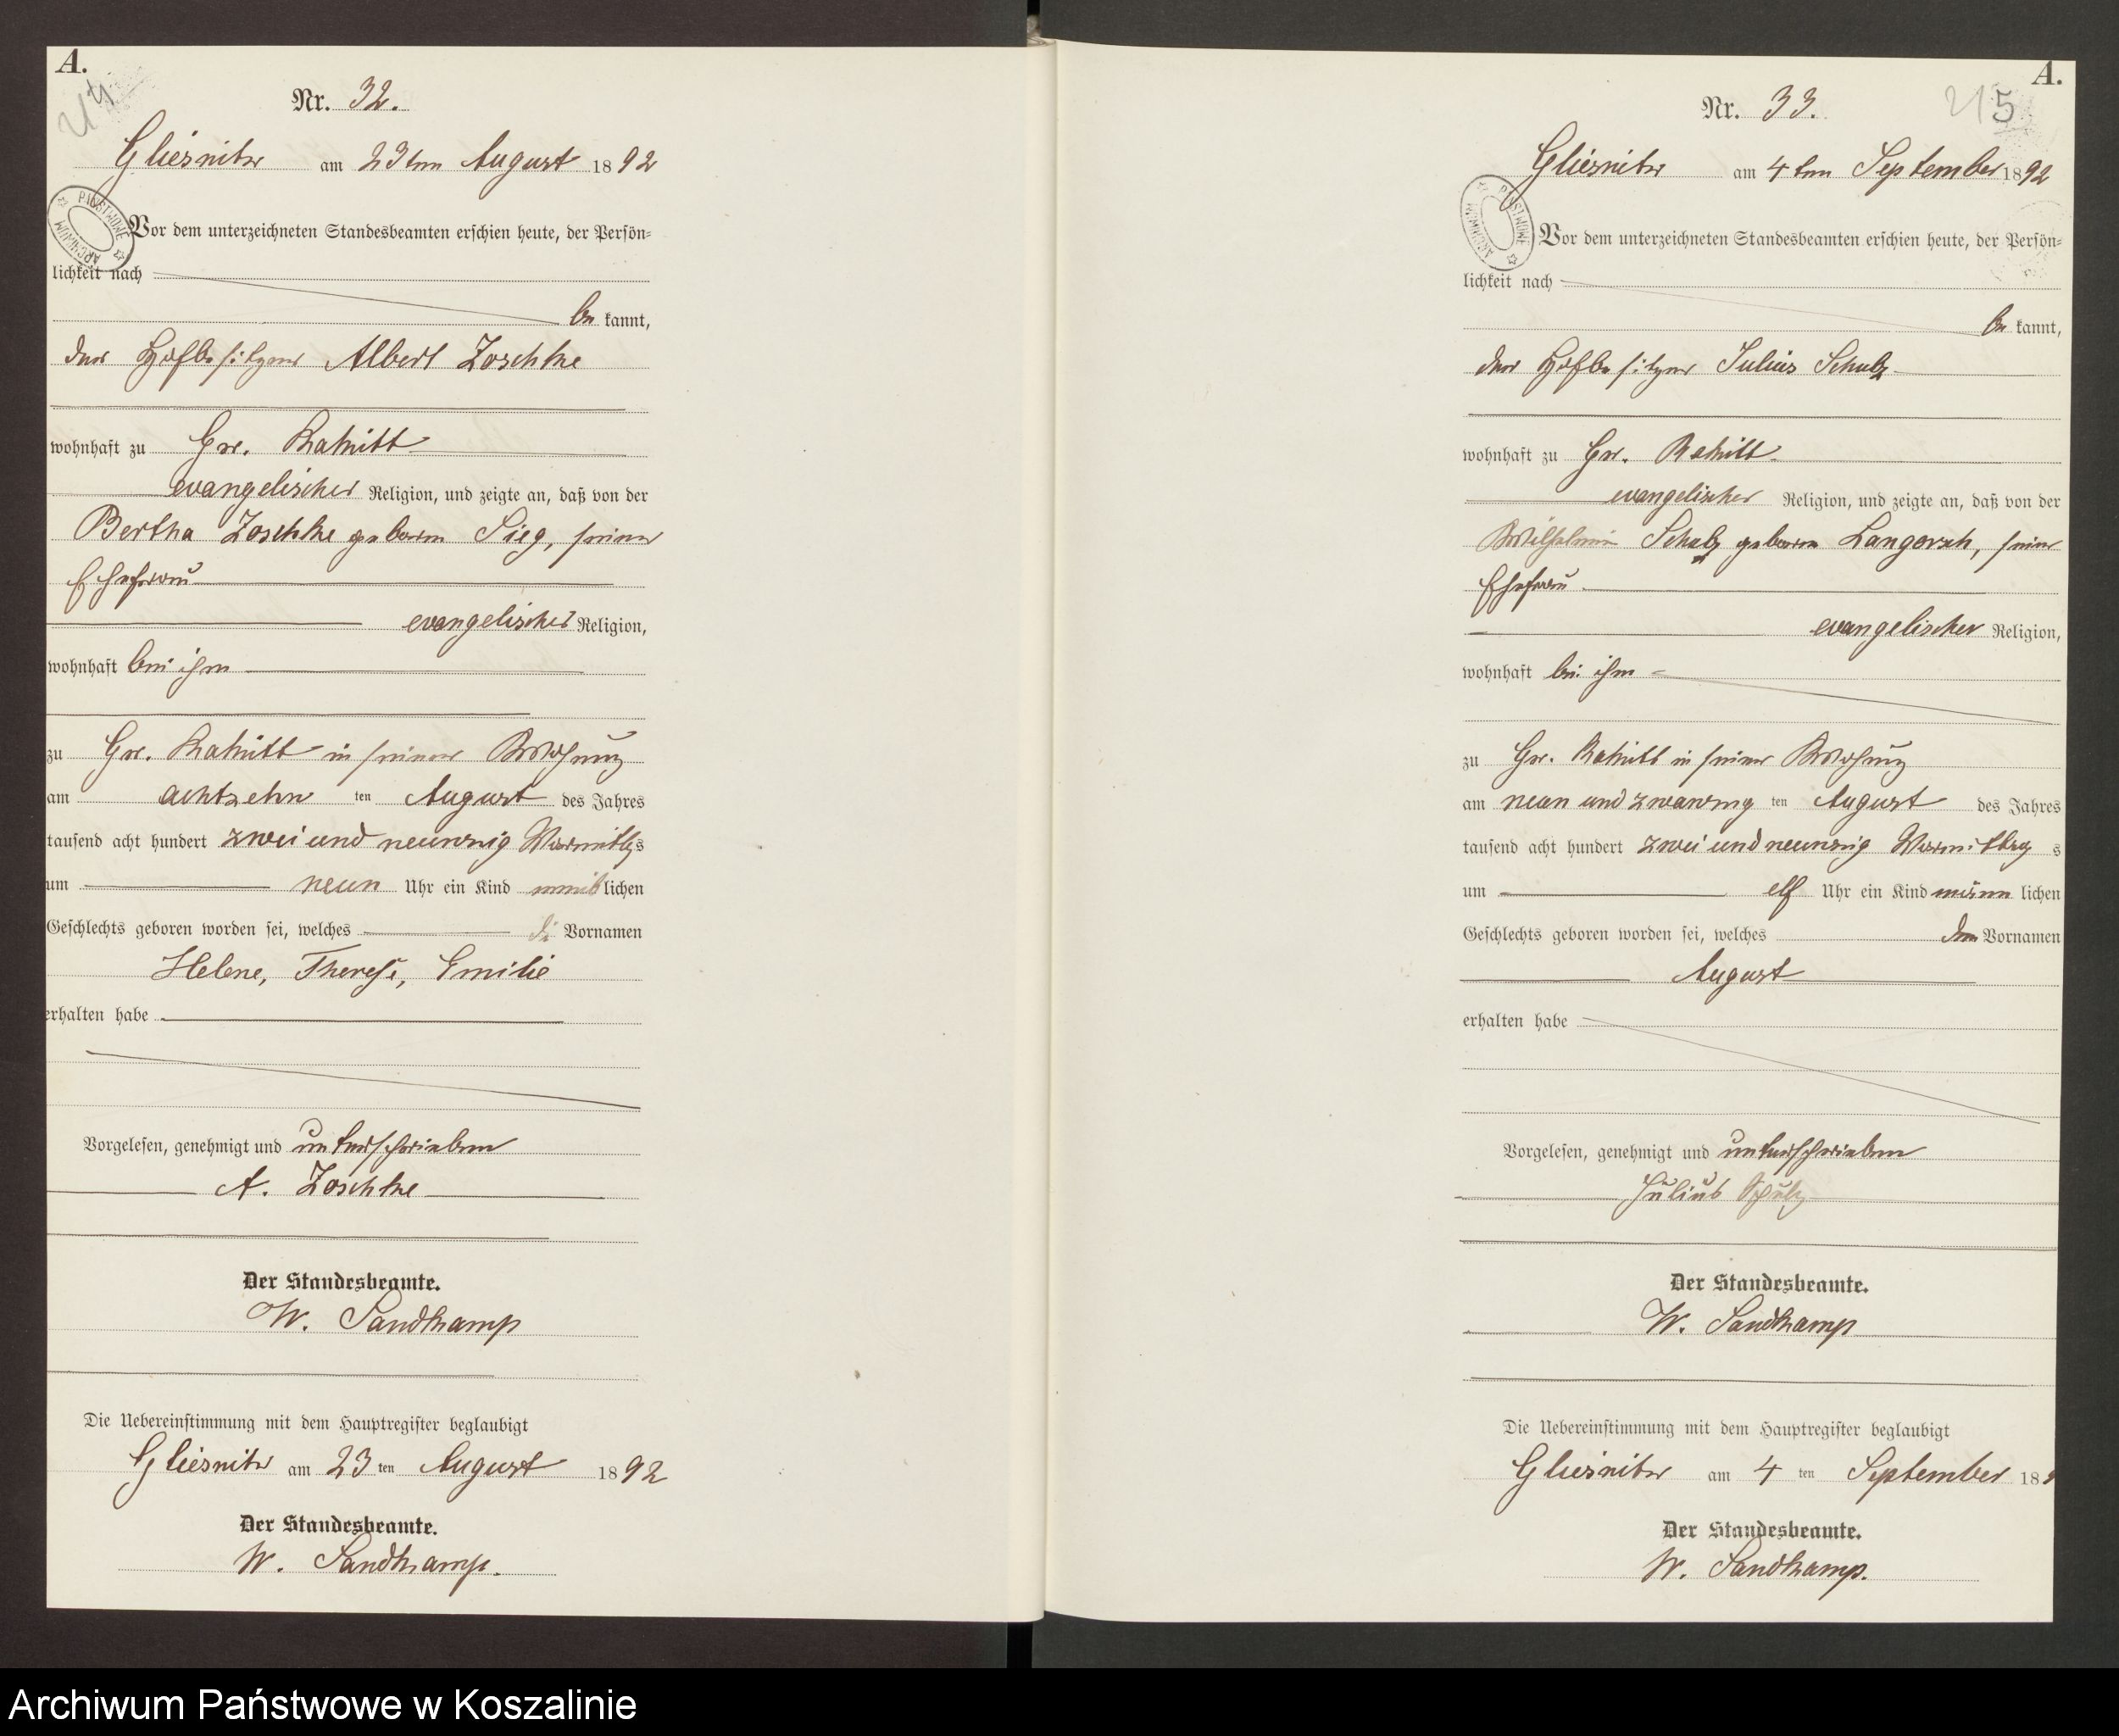 A.
Nr. 32.
Gliesnitz am 23ten August 1892
Vor dem unterzeichneten Standesbeamten erschien heute, der Persön-
lichkeit nach
be kannt,
der Hofbesitzer Albert Zoschke
wohnhaft zu Gr. Rakitt
evangelischer Religion, und zeigte an, daß von der
Bertha Zoschke geboren Sieg, seiner
Ehefrau
evangelischer Religion,
wohnhaft bei ihm
zu Gr. Rakitt in seiner Wohnung
am achtzehn ten August des Jahres
tausend acht hundert zwei und neunzig Vormittags
um neun Uhr ein Kind weiblichen
Geschlechts geboren worden sei, welches die Vornamen
Helene, Therese, Emilie
erhalten habe
Vorgelesen, genehmigt und unterschrieben
A. Zoschke
Der Standesbeamte.
W. Sandkamp
Die Uebereinstimmung mit dem Hauptregister beglaubigt
Gliesnitz am 23 ten August 1892
Der Standesbeamte.
W. Sandkamp.
A.
215
Nr. 33.
Gliesnitz am 4ten September 1892
PAŃSTWOWE ARCHIWUM
Vor dem unterzeichneten Standesbeamten erschien heute, der Persön-
lichkeit nach
be kannt,
der Hofbesitzer Julius Schulz
wohnhaft zu Gr. Rakitt
evangelischer Religion, und zeigte an, daß von der
Wilhelmine Schulz geboren Langosch, seiner
Ehefrau
evangelischer Religion,
wohnhaft bei ihm
zu Gr. Rakitt in seiner Wohnung
am neun und zwanzig ten August des Jahres
tausend acht hundert zwei und neunzig Vormittag s
um elf Uhr ein Kind männ lichen
Geschlechts geboren worden sei, welches den Vornamen
August
erhalten habe
Vorgelesen, genehmigt und unterschrieben
Julius Schulz
Der Standesbeamte.
W. Sandkamp
Die Uebereinstimmung mit dem Hauptregister beglaubigt
Gliesnitz am 4 ten September 189
Der Standesbeamte.
W. Sandkamp.
Archiwum Państwowe w Koszalinie